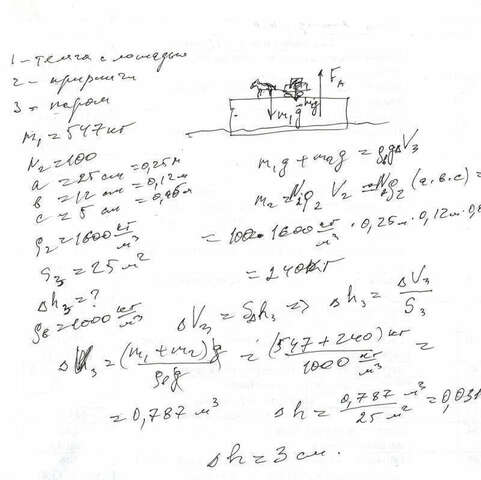 1 - телега с лошадью
2 - кирпичи
3 - паром
m₁ = 547 кг
N₂ = 100
a = 25 см = 0,25 м
b = 12 см = 0,12 м
c = 5 см = 0,05 м
ρ₂ = 1600 кг/м³
S₃ = 25 м²
Δh₃ = ?
ρв = 1000 кг/м³
F_A
m₁g mg
m₁g + m₂g = ρвgΔV₃
m₂ = N₂ρ₂ V₂ = N₂ρ₂ (a·b·c) =
= 100 · 1600 кг/м³ · 0,25 м · 0,12 м · 0,0
= 240 кг
ΔV₃ = SΔh₃ => Δh₃ = ΔV₃/S₃
ΔV₃ = (m₁ + m₂)g/ρвg = (547 + 240) кг/1000 кг/м³ =
= 0,787 м³
Δh = 0,787 м³/25 м² = 0,031
Δh = 3 см.